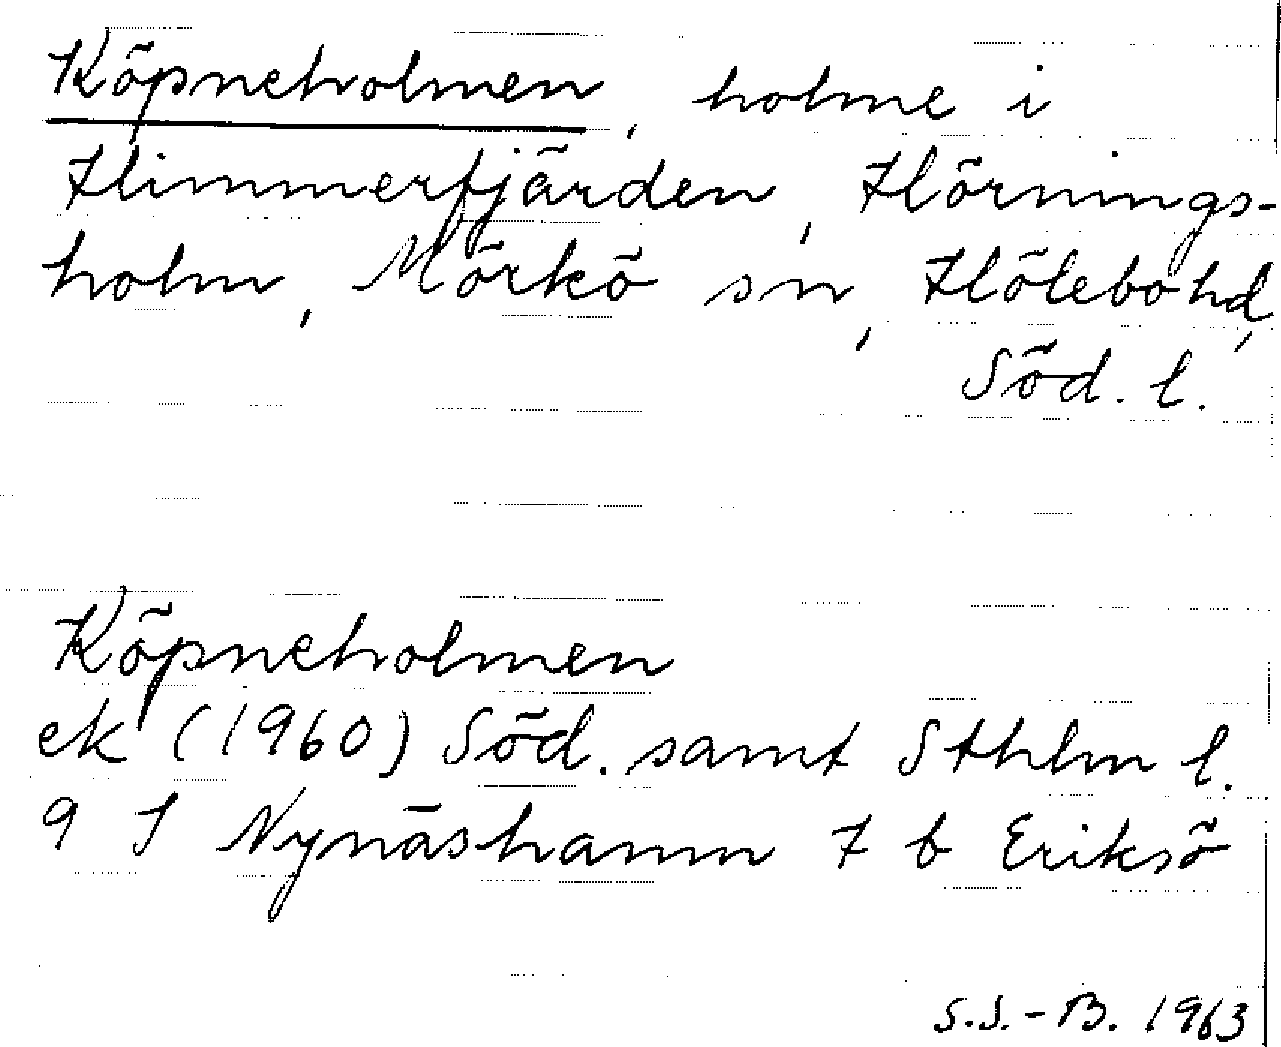 Köpneholmen, holme i
Himmerfjärden, Hörnings-
holm, Mörkö sn, Hölebo hd,
Söd. l.
Köpneholmen
ek (1960) Söd. samt Sthlm l.
9 I Nynäshamn 7 b Eriksö
S.S.-B. 1963